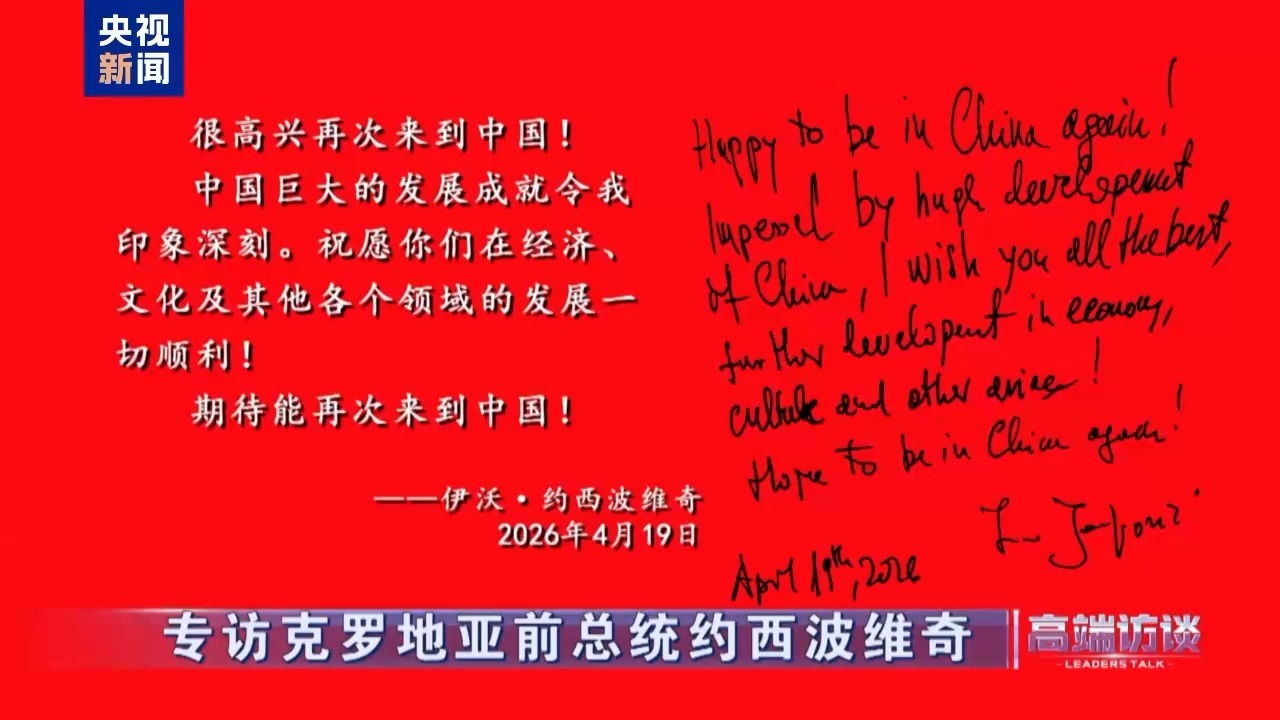 央视
新闻
很高兴再次来到中国！
中国巨大的发展成就令我
印象深刻。祝愿你们在经济、
文化及其他各个领域的发展一
切顺利！
期待能再次来到中国！
——伊沃·约西波维奇
2026年4月19日
Happy to be in China again!
by hugh development
of China, I wish you all the best,
further development in economy,
culture and other !
Hope to be in China again!
April 19th, 2026
专访克罗地亚前总统约西波维奇
高端访谈
LEADERS TALK